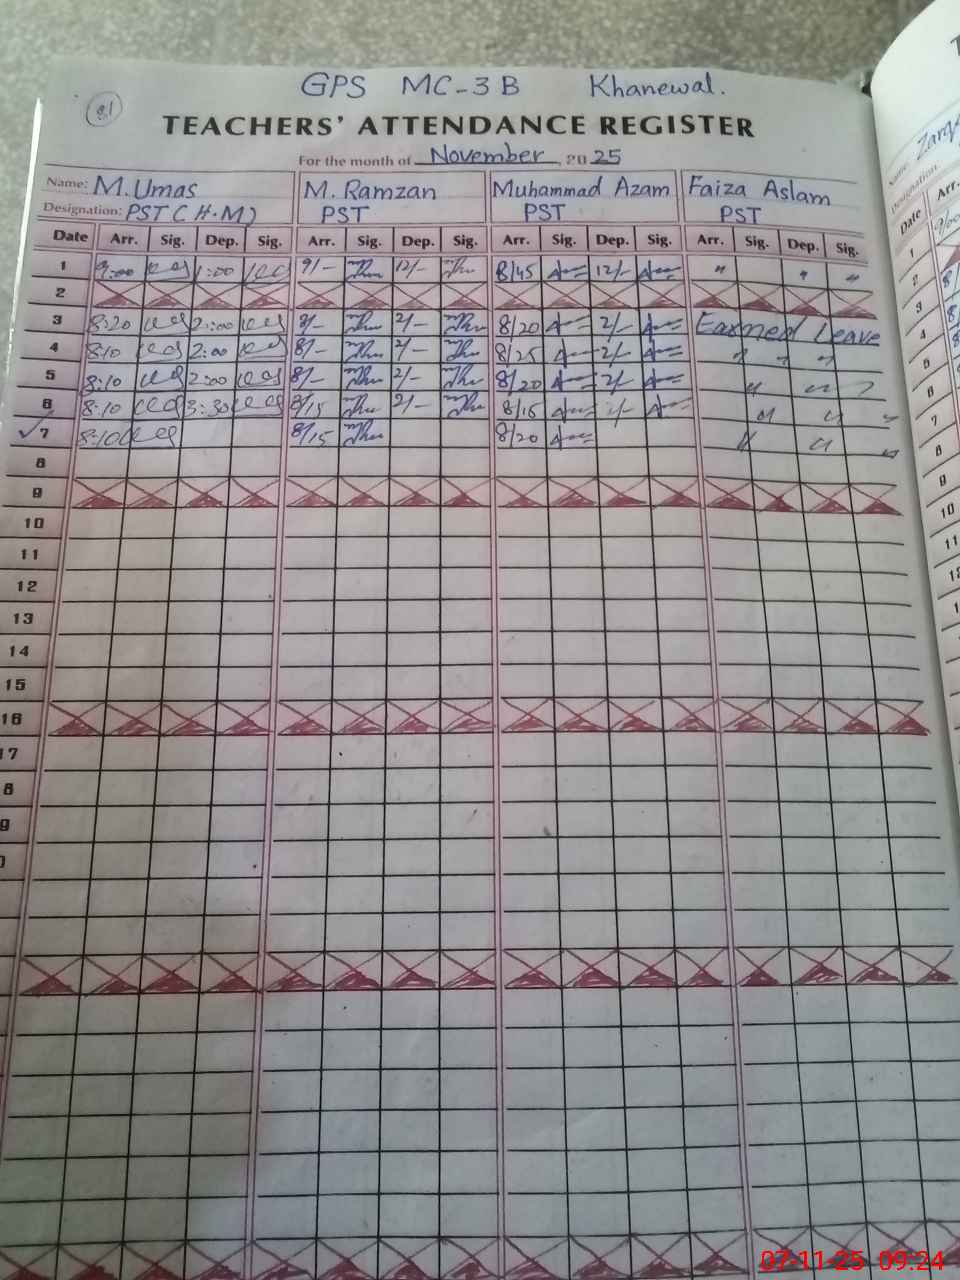 81
GPS MC-3B Khanewal.
TEACHERS' ATTENDANCE REGISTER
For the month of November, 2025
Name: M. Umas M. Ramzan Muhammad Azam Faiza Aslam
Designation: PST (H.M) PST PST PST
Date Arr. Sig. Dep. Sig. Arr. Sig. Dep. Sig. Arr. Sig. Dep. Sig. Arr. Sig. Dep. Sig.
1 9:00 1:00 9/- 12/- 8/45 12/- " " "
2
3 8:20 2:00 8/- 2/- 8/20 2/- Earned Leave
4 8:10 2:00 8/- 2/- 8/25 2/- " " "
5 8:10 2:00 8/- 2/- 8/20 2/- " "
6 8:10 3:30 8/15 2/- 8/15 2/- " " "
7 8:10 8/15 8/20 " " "
8
9
10
11
12
13
14
15
16
17
8
9
0
Name:
Designation:
Date Arr.
1
2
3
4
5
6
7
8
9
10
11
07-11-25 09:24